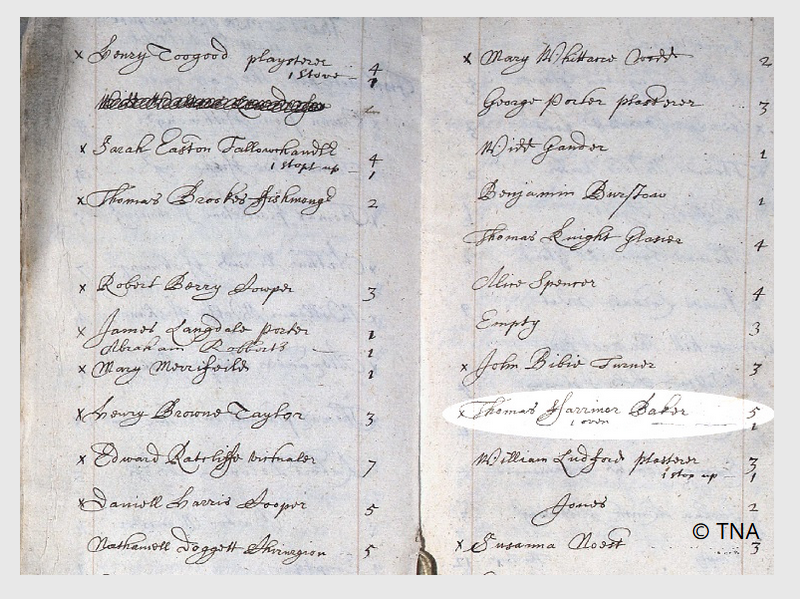 x Henry Toogood playsterer 4
1 stove 1
x Sarah Easton Tallowchandler 4
1 stopt up 1
x Thomas Brookes ffishmongr 2
x Robert Berry Cowper 3
x James Langdale porter 1
Abraham Robberts 1
x Mary Merrifeild 1
x Henry Browne Taylor 3
x Edward Ratcliffe victualer 7
x Daniell Harris Cooper 5
Nathaniell Doggett Chirurgion 5
x Mary Whittacre 2
George Porter plasterer 3
Widd Gander 1
Benjamin Burstow 1
Thomas Knight Glasier 4
Alice Spencer 4
Empty 3
x John Bibie Turner 3
x Thomas ffarrinor Baker 5
1 oven 1
William Ludford plasterer 3
1 stop up 1
Jones 2
x Susanna Noest 3
© TNA